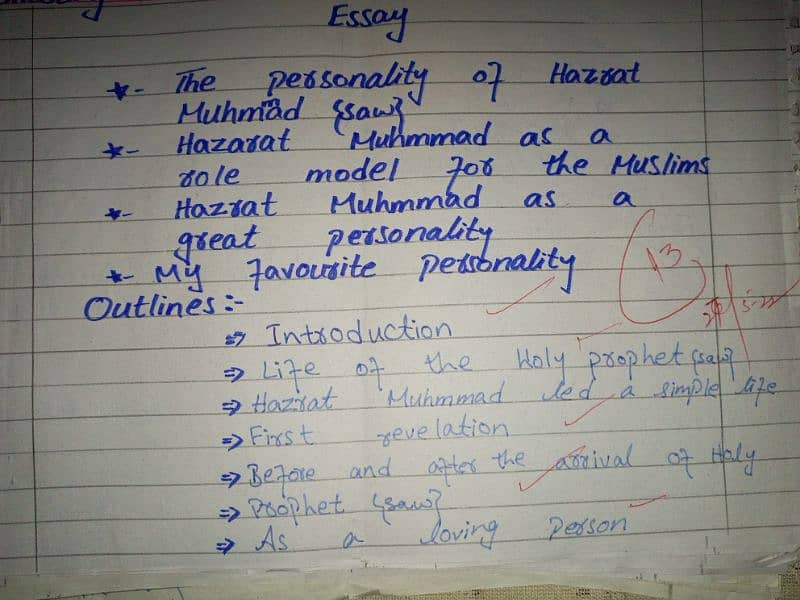 Essay
*- The personality of Hazrat
Muhmad {saw}
*- Hazarat Muhmmad as a
role model for the Muslims
*- Hazrat Muhmmad as a
great personality
*- My favourite personality
13
Outlines :-
⇒ Introduction
⇒ Life of the Holy prophet {saw}
⇒ Hazrat Muhmmad led a simple life
⇒ First revelation
⇒ Before and after the arrival of Holy
⇒ Prophet {saw}
⇒ As a loving person